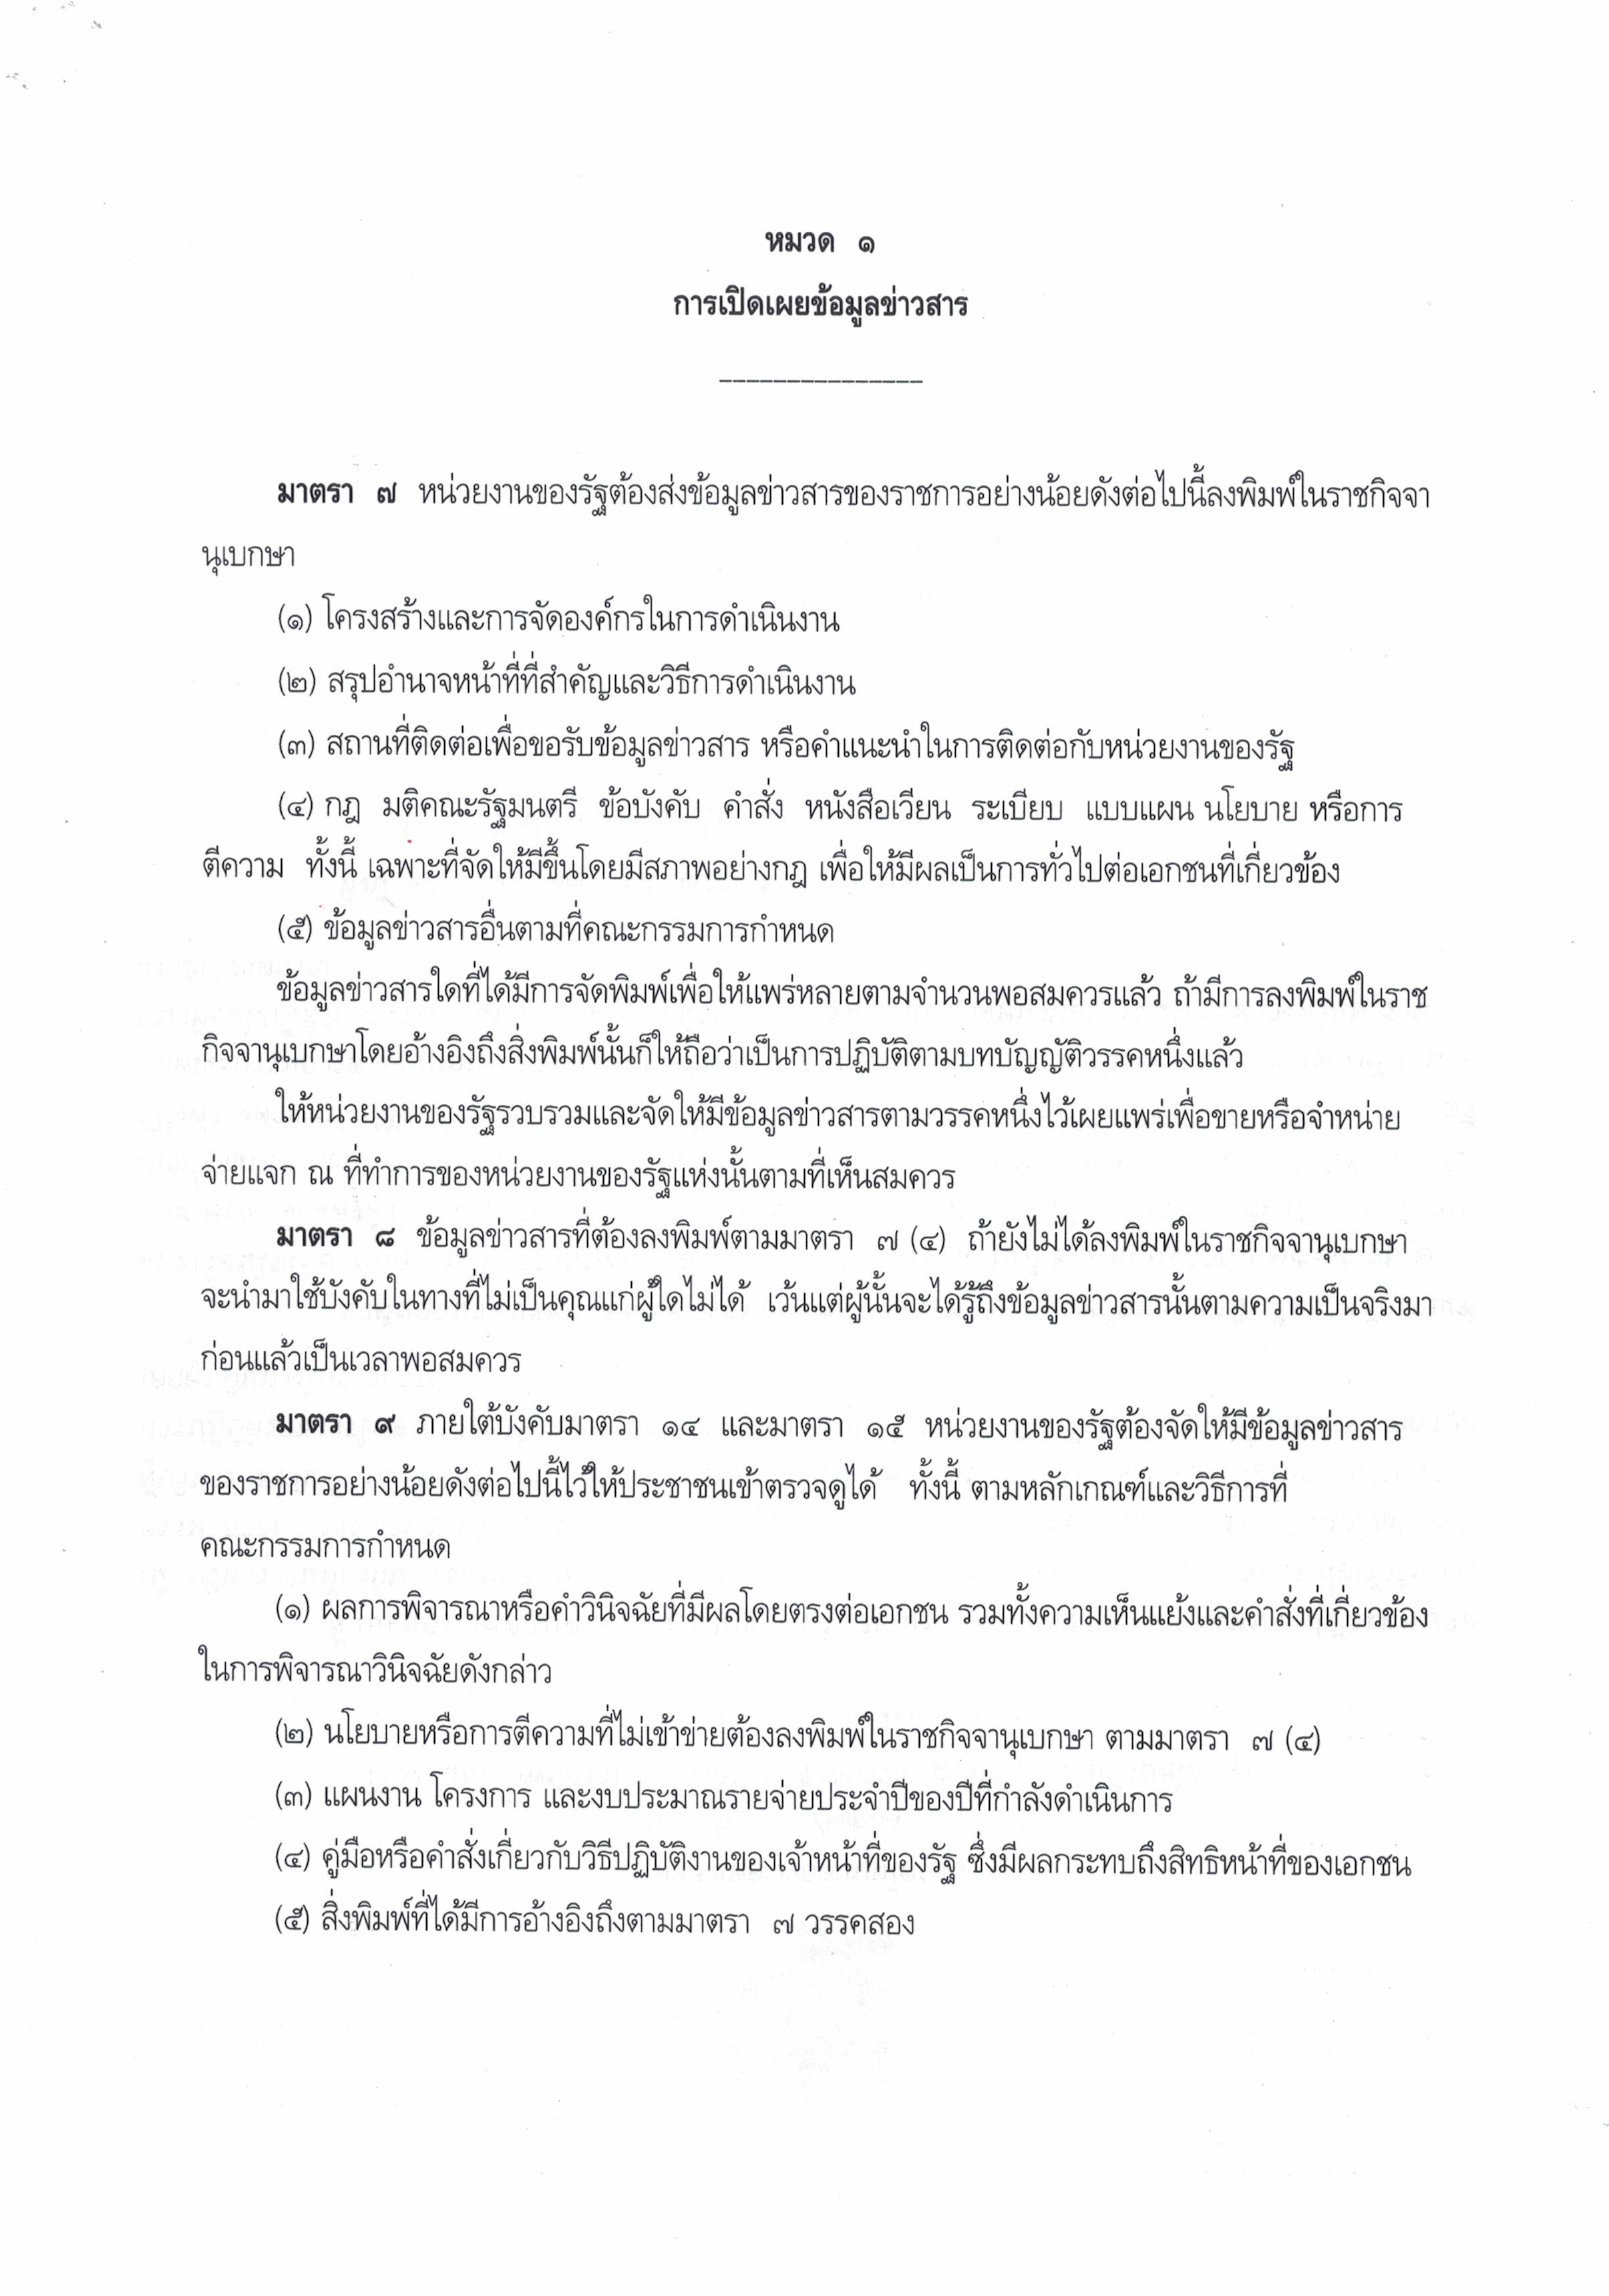 หมวด ๑
การเปิดเผยข้อมูลข่าวสาร
---------------
มาตรา ๗ หน่วยงานของรัฐต้องส่งข้อมูลข่าวสารของราชการอย่างน้อยดังต่อไปนี้ลงพิมพ์ในราชกิจจา
นุเบกษา
(๑) โครงสร้างและการจัดองค์กรในการดำเนินงาน
(๒) สรุปอำนาจหน้าที่ที่สำคัญและวิธีการดำเนินงาน
(๓) สถานที่ติดต่อเพื่อขอรับข้อมูลข่าวสาร หรือคำแนะนำในการติดต่อกับหน่วยงานของรัฐ
(๔) กฎ มติคณะรัฐมนตรี ข้อบังคับ คำสั่ง หนังสือเวียน ระเบียบ แบบแผน นโยบาย หรือการ
ตีความ ทั้งนี้ เฉพาะที่จัดให้มีขึ้นโดยมีสภาพอย่างกฎ เพื่อให้มีผลเป็นการทั่วไปต่อเอกชนที่เกี่ยวข้อง
(๕) ข้อมูลข่าวสารอื่นตามที่คณะกรรมการกำหนด
ข้อมูลข่าวสารใดที่ได้มีการจัดพิมพ์เพื่อให้แพร่หลายตามจำนวนพอสมควรแล้ว ถ้ามีการลงพิมพ์ในราช
กิจจานุเบกษาโดยอ้างอิงถึงสิ่งพิมพ์นั้นก็ให้ถือว่าเป็นการปฏิบัติตามบทบัญญัติวรรคหนึ่งแล้ว
ให้หน่วยงานของรัฐรวบรวมและจัดให้มีข้อมูลข่าวสารตามวรรคหนึ่งไว้เผยแพร่เพื่อขายหรือจำหน่าย
จ่ายแจก ณ ที่ทำการของหน่วยงานของรัฐแห่งนั้นตามที่เห็นสมควร
มาตรา ๘ ข้อมูลข่าวสารที่ต้องลงพิมพ์ตามมาตรา ๗ (๔) ถ้ายังไม่ได้ลงพิมพ์ในราชกิจจานุเบกษา
จะนำมาใช้บังคับในทางที่ไม่เป็นคุณแก่ผู้ใดไม่ได้ เว้นแต่ผู้นั้นจะได้รู้ถึงข้อมูลข่าวสารนั้นตามความเป็นจริงมา
ก่อนแล้วเป็นเวลาพอสมควร
มาตรา ๙ ภายใต้บังคับมาตรา ๑๔ และมาตรา ๑๕ หน่วยงานของรัฐต้องจัดให้มีข้อมูลข่าวสาร
ของราชการอย่างน้อยดังต่อไปนี้ไว้ให้ประชาชนเข้าตรวจดูได้ ทั้งนี้ ตามหลักเกณฑ์และวิธีการที่
คณะกรรมการกำหนด
(๑) ผลการพิจารณาหรือคำวินิจฉัยที่มีผลโดยตรงต่อเอกชน รวมทั้งความเห็นแย้งและคำสั่งที่เกี่ยวข้อง
ในการพิจารณาวินิจฉัยดังกล่าว
(๒) นโยบายหรือการตีความที่ไม่เข้าข่ายต้องลงพิมพ์ในราชกิจจานุเบกษา ตามมาตรา ๗ (๔)
(๓) แผนงาน โครงการ และงบประมาณรายจ่ายประจำปีของปีที่กำลังดำเนินการ
(๔) คู่มือหรือคำสั่งเกี่ยวกับวิธีปฏิบัติงานของเจ้าหน้าที่ของรัฐ ซึ่งมีผลกระทบถึงสิทธิหน้าที่ของเอกชน
(๕) สิ่งพิมพ์ที่ได้มีการอ้างอิงถึงตามมาตรา ๗ วรรคสอง